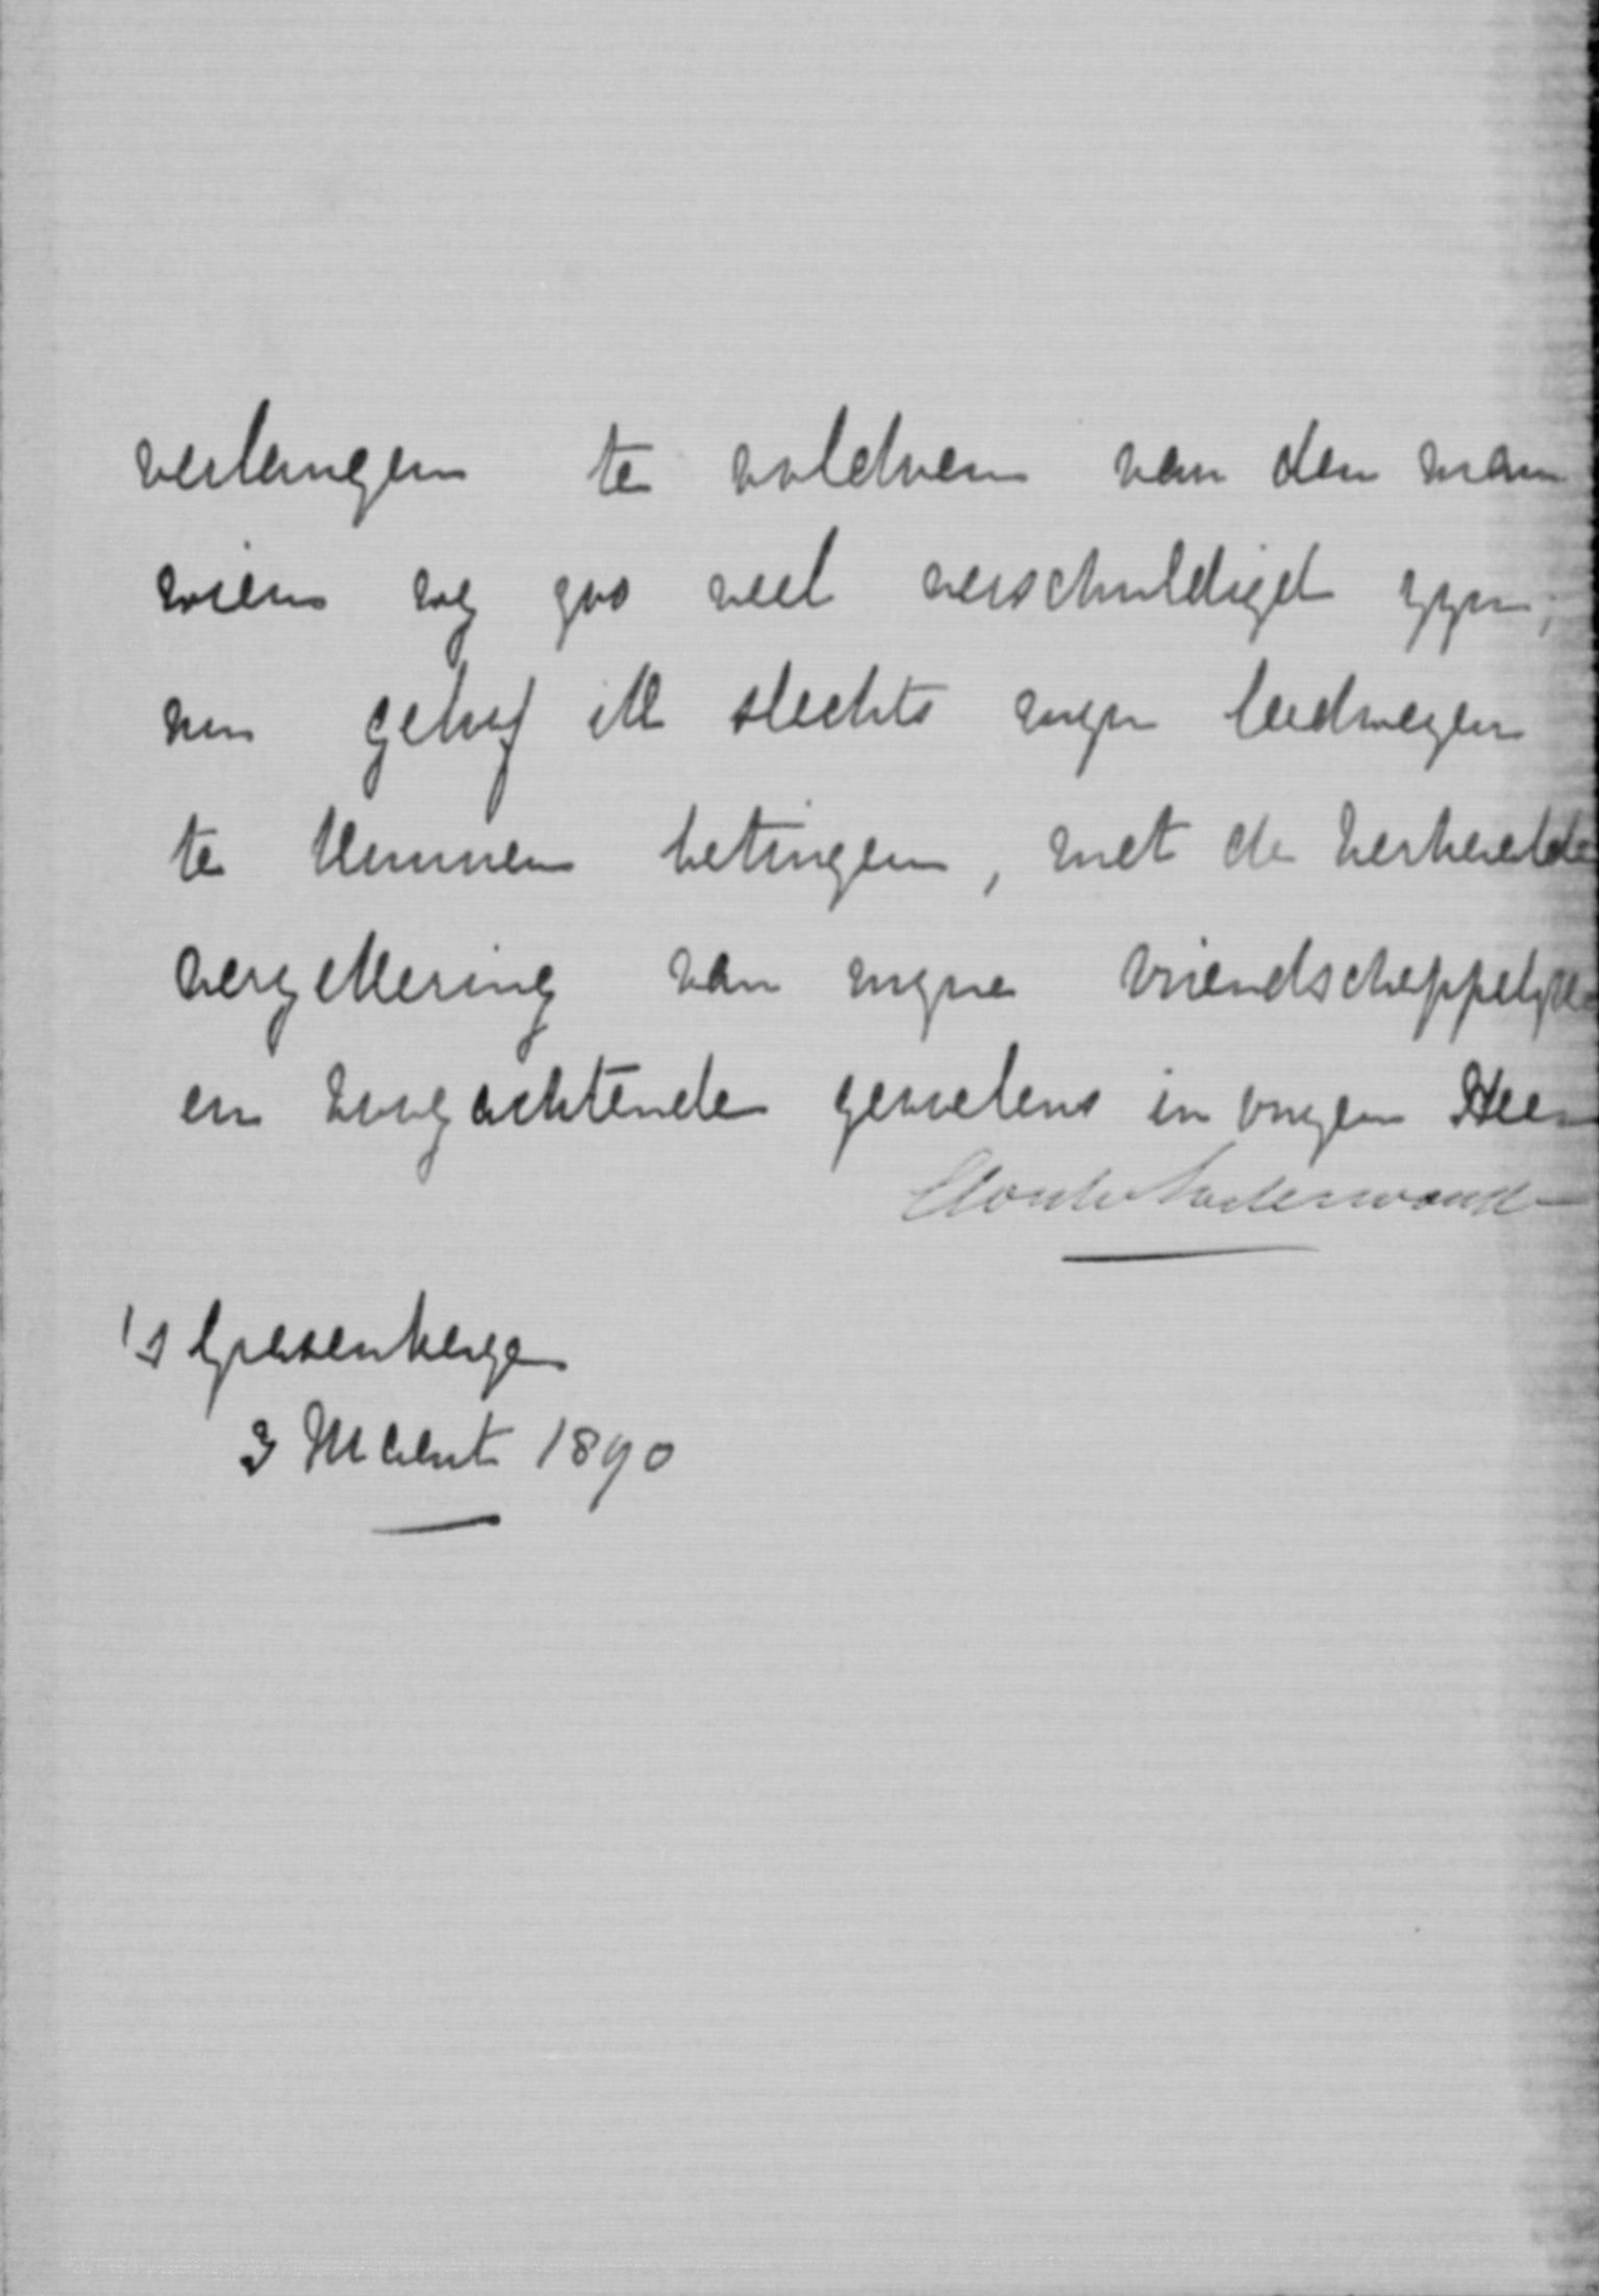 verlangen te voldoen van den man
wien wy zoo veel verschuldigd zyn;
nu geloof ik slechts myn leedwezen
te kunnen betuigen, met de herhaalde
verzekering van myne vriendschappelyke
en hoogachtende gevoelens in onzen Heer
's Gravenhage
3 Maart 1890